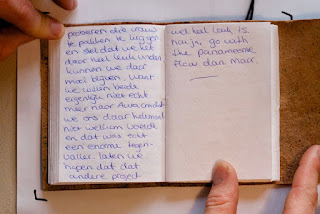 proberen die vrouw
te pakken te krijgen
en stel dat we het
daar heel leuk vinden
kunnen we daar
mooi blijven. Want
we willen beide
eigenlijk niet echt
meer naar Awa omdat
we ons daar helemaal
niet welkom voelde
en dat was echt
een enorme tegen-
valler. Laten we
hopen dat dat
andere project
wel heel leuk is.
nou ja, go with
the panameense
flow dan maar.